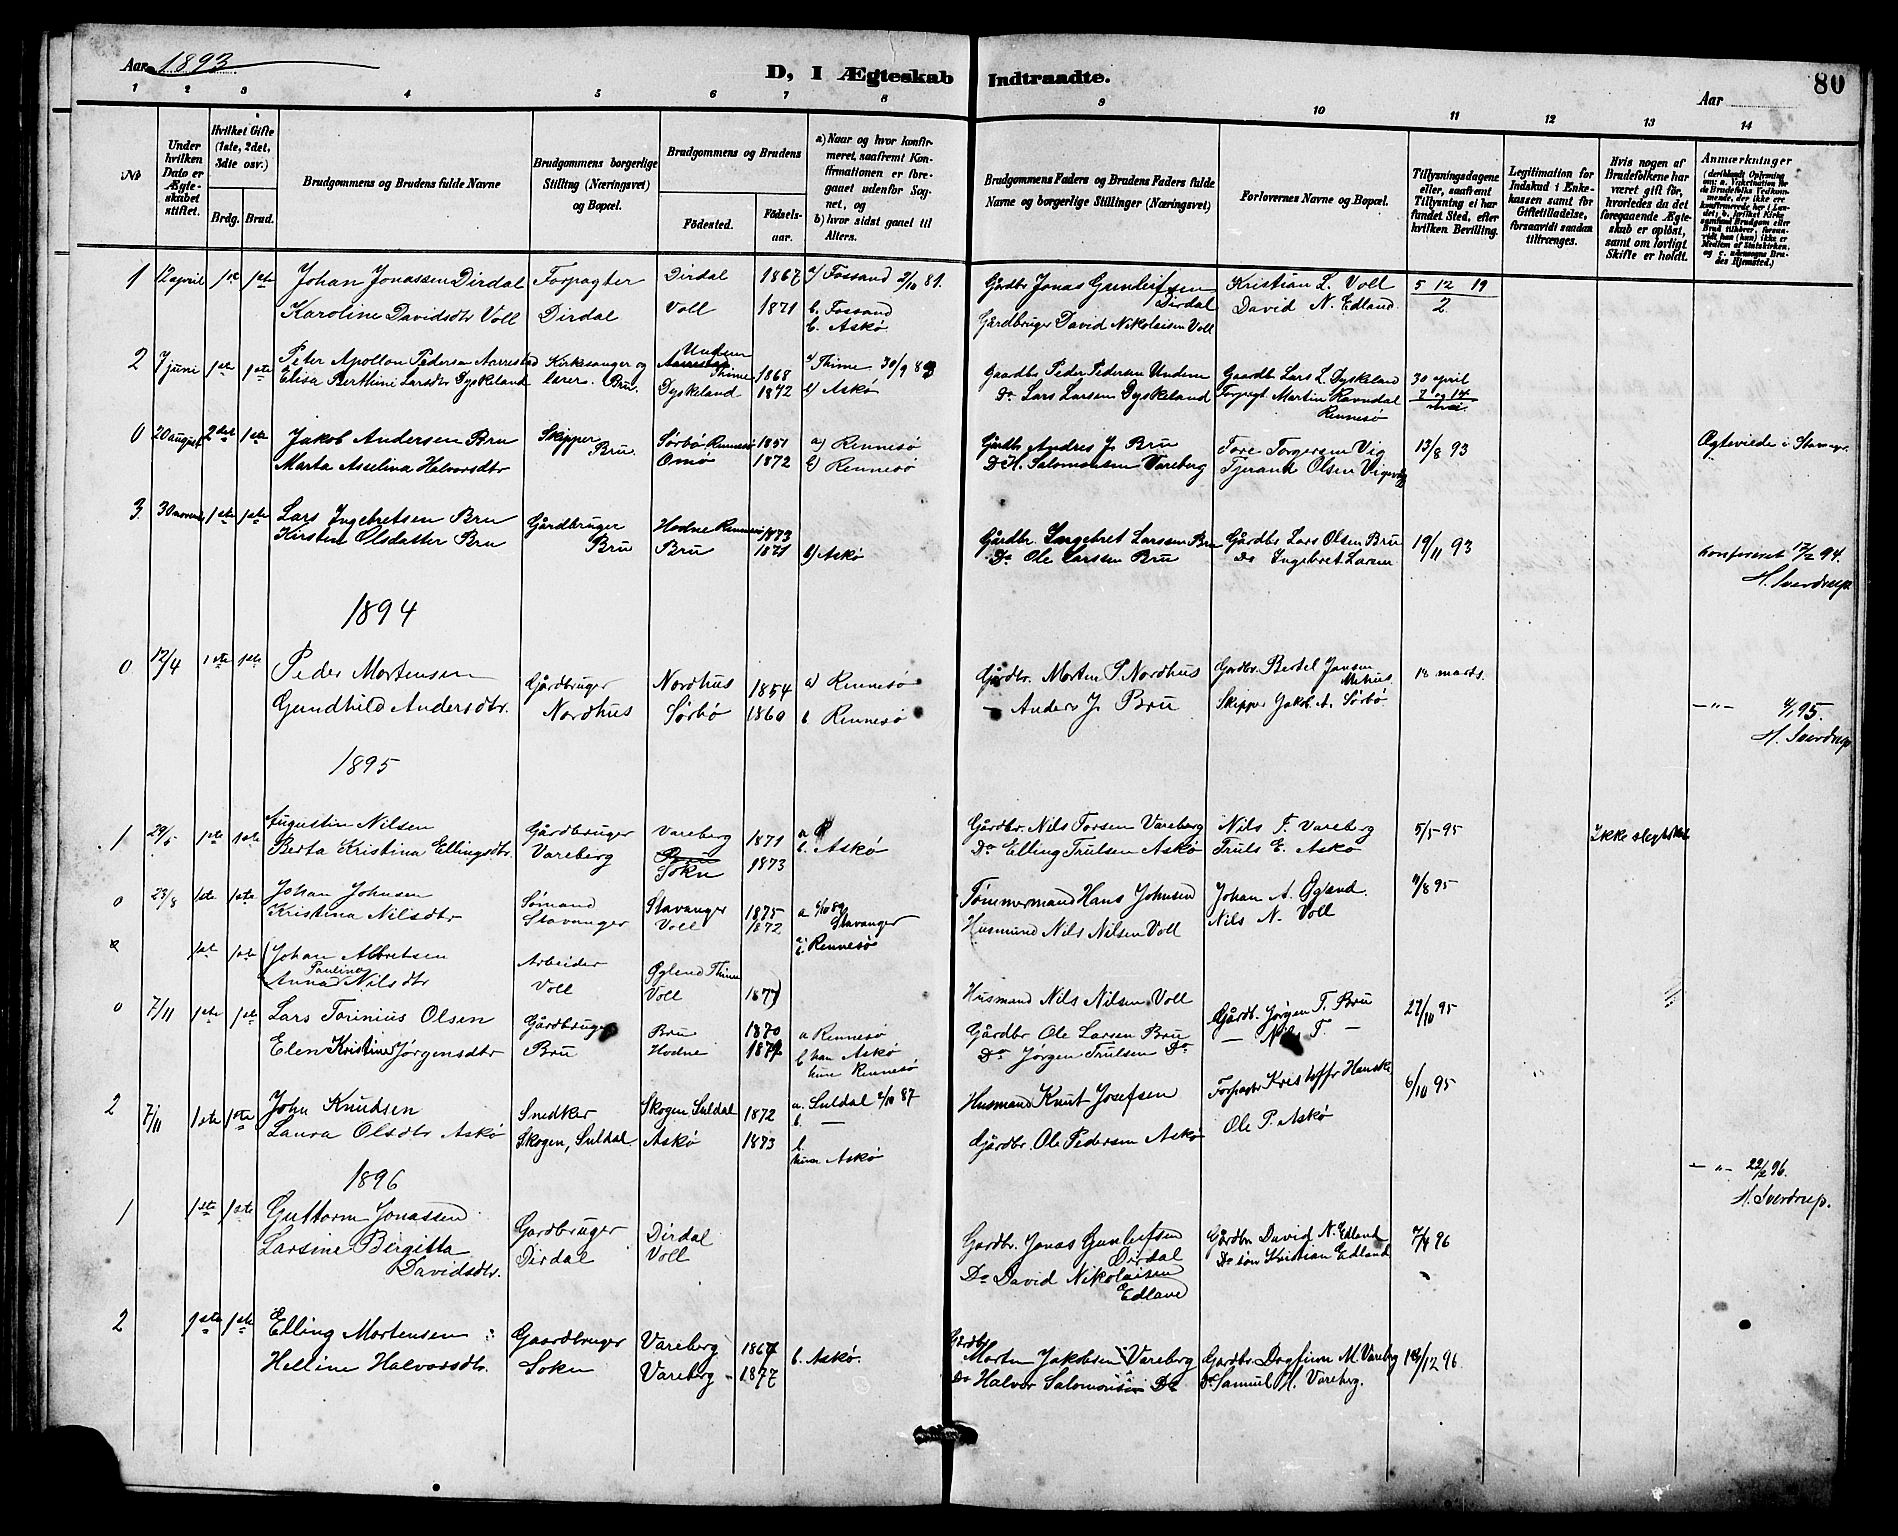 Aar 1893
D, I Ægteskab Indtraadte.
80
Aar
1 2 3 4 5 6 7 8 9 10 11 12 13 14
No
Under hvilken Dato er Ægteskabet stiftet.
Hvilket Gifte (1ste, 2det, 3die osv.)
Brdg. Brud.
Brudgommens og Brudens fulde Navne
Brudgommens borgerlige Stilling (Næringsvei) og Bopæl.
Brudgommens og Brudens
Fødested.
Fødselsaar.
a) Naar og hvor konfirmeret, saafremt Konfirmationen er foregaaet udenfor Sognet, og
b) hvor sidst gaaet til Alters.
Brudgommens Faders og Brudens Faders fulde Navne og borgerlige Stillinger (Næringsvei)
Forlovernes Navne og Bopæl.
Tillysningsdagene eller, saafremt Tillysning ei har fundet Sted, efter hvilken Bevilling.
Legitimation for Indskud i Enkekassen samt for Giftetilladelse, forsaavidt saadan tiltrænges.
Hvis nogen af Brudefolkene har været gift før, hvorledes da det foregaaende Ægteskab er opløst, samt om lovligt Skifte er holdt.
Anmærkninger
1 12 april 1ste 1ste Johan Jonassen Dirdal Forpagter Dirdal 1867 a/ Fossand 2/10 81. Gårdbr Jonas Gunleifsen Dirdal Kristian L. Voll 5 12 19
Karoline Davidsdtr Voll Dirdal Voll 1871 b. Fossand b. Askø Gårdbruger David Nikolaisen Voll David N. Edland 2
2 7 juni 1ste 1ste Peter Apollon Pedersen Aarrestad Kirkesanger og Undem Thime 1868 a/ Thime 30/9 83 Gaardbr Peder Pedersen Undem Gaardb Lars L. Dyskeland 30 april
Elisa Berthine Larsdtr Dyskeland lærer. Bru. Dyskeland 1872 b) Askø Do Lars Larsen Dyskeland Forpagt Martin Ravndal Rennesø 7 og 14 mai
0 20 august 2det 1ste Jakob Andersen Bru Skipper Sørbø Rennesø 1851 a) Rennesø Gårdb Andres J. Bru Tore Torgersen Vig 13/8 93 Ægteviede i Stavanger
Marta Asselina Halvorsdtr Bru. Omø 1872 b) Rennesø Do H. Salomonsen Vareberg Tjerand Olsen
3 30 novem 1ste 1ste Lars Ingebretsen Bru Gårdbruger Hodne Rennesø 1873 Gårdbr. Ingebret Larssen Bru Gårdbr Lars Olsen Bru 19/11 93
Kirsten Olsdatter Bru Bru Bru 1871 b) Askø Do Ole Larssen Bru Do Ingebret Larsen konfereret 17/2 94.
H. Sverdrup.
1894
0 12/4 1ste 1ste Peder Mortensen Gårdbruger Nordhus 1854 a) Rennesø Gårdbr. Morten P. Nordhus Gardbr. Bertel Jansen 18 marts.
Gundhild Andersdtr. Nordhus Sørbø 1860 b Rennesø — Anders J. Bru Skipper Jakob A. Sørbø — " — 4/1 95.
H. Sverdrup
1895
1 29/5 1ste 1ste Augustin Nilsen Gårdbruger Vareberg 1871 a Gårdbr. Nils Torsen Vareberg Nils T. Vareberg 5/5 95 Ikke slegtskab
Berta Kristina Ellingsdtr. Vareberg Sokn 1873 b. Askø Do Elling Trulsen Askø Truls E. Askø
0 23/8 1ste 1ste Johan Johnsen Sømand Stavanger 1875 a 6/10 89 Stavanger Tømmermand Hans Johnsen Johan A. Øgland 11/8 95
Kristina Nilsdtr Stavanger Voll 1872 b. Rennesø Husmand Nils Nilsen Voll Nils N. Voll
1ste 1ste Johan Albretsen Arbeider Øglend Thime
Anna Paulina Nilsdtr Voll Voll 1877 Husmand Nils Nilsen Voll
0 7/11 1ste 1ste Lars Torinius Olsen Gårdbruger Bru 1870 a Rennesø Gårdbr Ole Larsen Bru Gårdb. Jørgen T. Bru 27/10 95
Elen Kristine Jørgensdtr Bru Hodne 1871 b han Askø hun Rennesø Do Jørgen Trulsen Do — Nils T. —
2 7/11 1ste 1ste John Knudsen Snedker Skogen Suldal 1872 a. Suldal 2/10 87 Husmand Knut Josefsen Forpagter Kristoffer 6/10 95
b. —
Laura Olsdtr Askø Skogen, Suldal. Askø 1873 b. hun Askø Gjårdbr. Ole Pedersen Askø Ole P. Askø
— " — 22/2 96.
H. Sverdrup.
1896
1 1ste 1ste Guttorm Jonassen Gardbruger Dirdal Gardbr. Jonas Gunleifsen Dirdal Gårdbr David N. Edland 7/4 96
Larsine Birgitta Davidsdtr. Dirdal Voll Do David Nikolaisen Edland Do søn Kristian Edland
2 1ste 1ste Elling Mortensen Gaardbruger Vareberg 1867 Gårdbr Morten Jakobsen Vareberg Gardbr. Dagfinn M. Vareberg 12 96
Helline Halvorsdtr. Sokn Vareberg 1877 b. Askø. Do Halvor Salomonsen Do Do Samuel H. Vareberg.